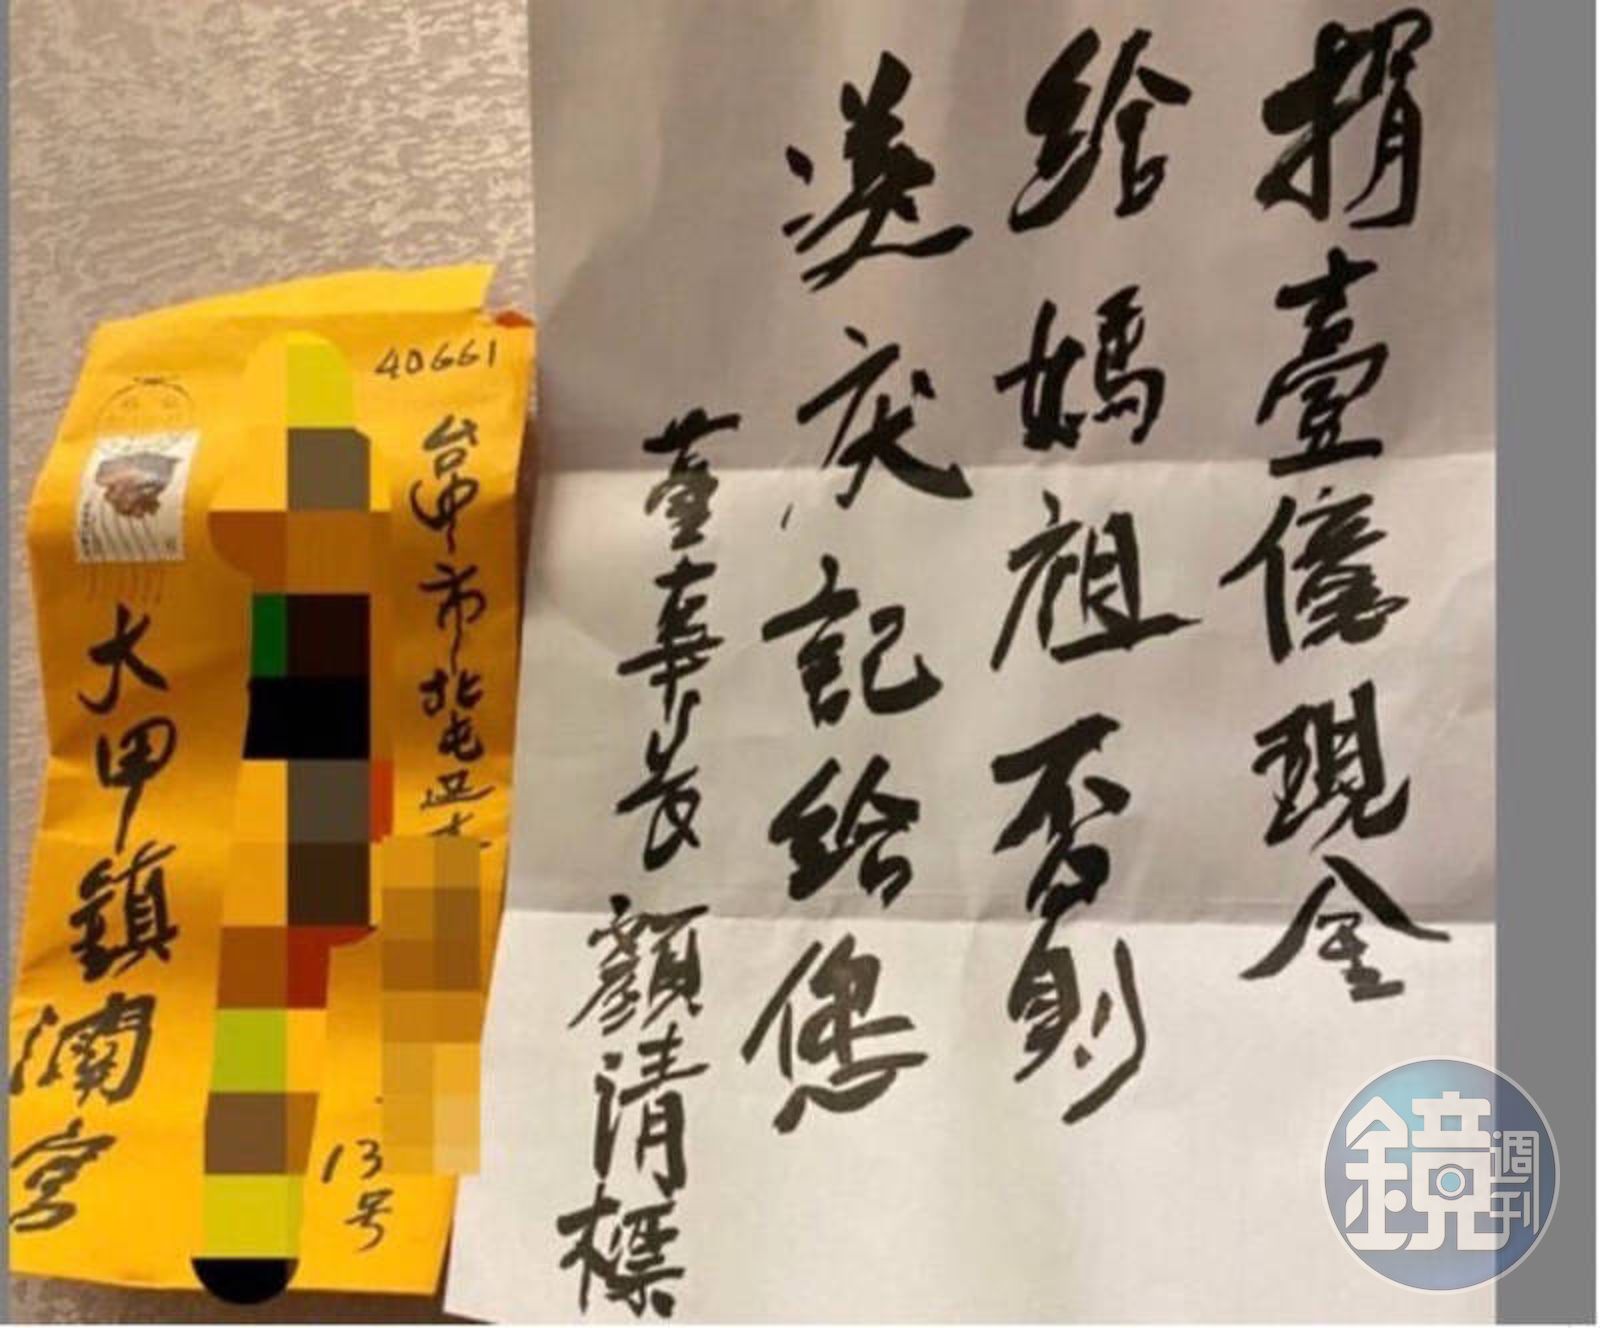 捐壹億現金
給媽祖否則
記給您
董事長 顏清標
40661
台中市北屯区
13号
大甲鎮瀾宮
鏡週刊